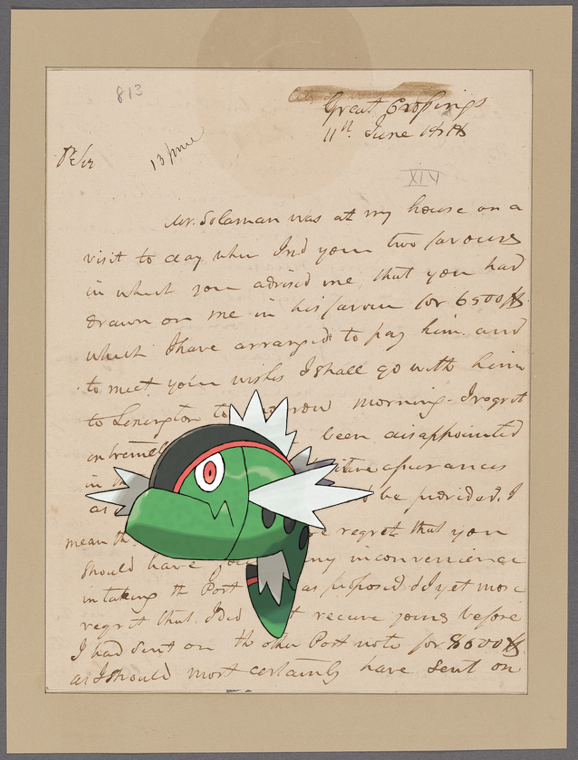 813
Great Crossings
11th June 1818
13 June
XIV
Mr. Solaman was at my house on a
visit to day when I rd your two favours
in which you advised me that you had
drawn on me in his favour for 6500$
which I have arranged to pay him and
to meet your wishes I shall go with him
to Lexington to row morning - I regret
been disappointed
in th
as be provided. I
mean th regret that you
should have you any inconvenience
in taking the Post as proposed & yet more
regret that I did t receive yours before
I had sent on th other Post note for 8600$
as I should most certainly have sent on